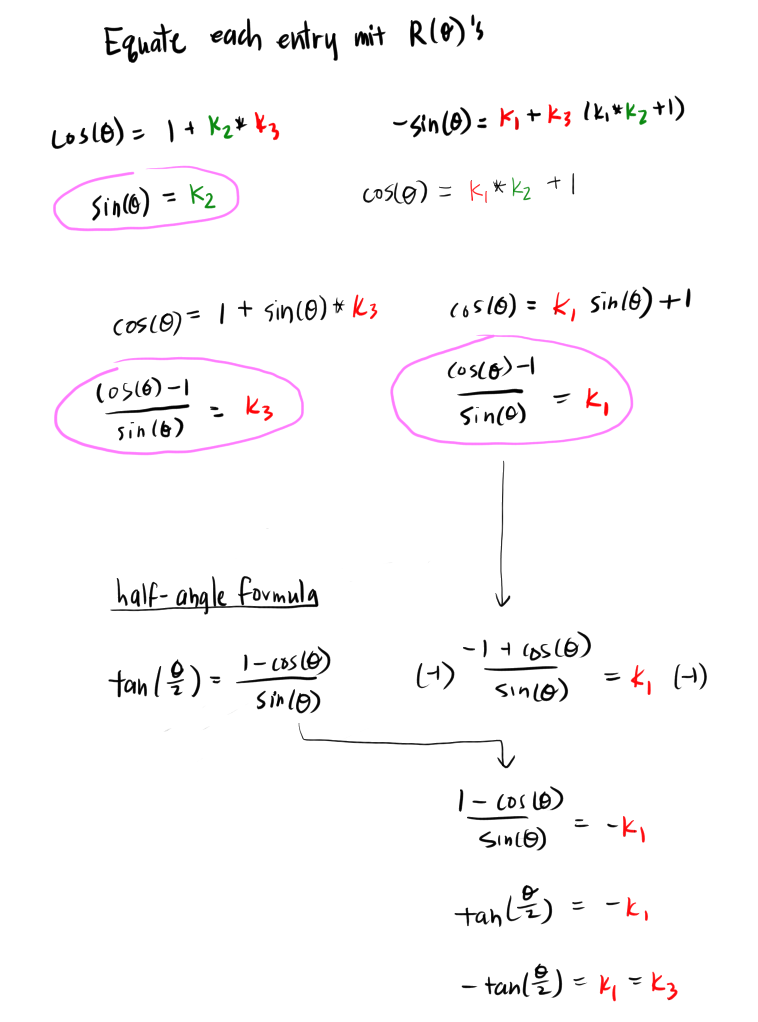 Equate each entry mit R(θ)'s
cos(θ) = 1 + k₂*k₃
-sin(θ) = k₁ + k₃ (k₁*k₂+1)
sin(θ) = k₂
cos(θ) = k₁*k₂ + 1
cos(θ) = 1 + sin(θ)*k₃
cos(θ) = k₁ sin(θ)+1
(cos(θ)-1)/sin(θ) = k₃
(cos(θ)-1)/sin(θ) = k₁
half-angle formula
tan(θ/2) = (1-cos(θ))/sin(θ)
(-1) (-1+cos(θ))/sin(θ) = k₁ (-1)
(1-cos(θ))/sin(θ) = -k₁
tan(θ/2) = -k₁
-tan(θ/2) = k₁ = k₃